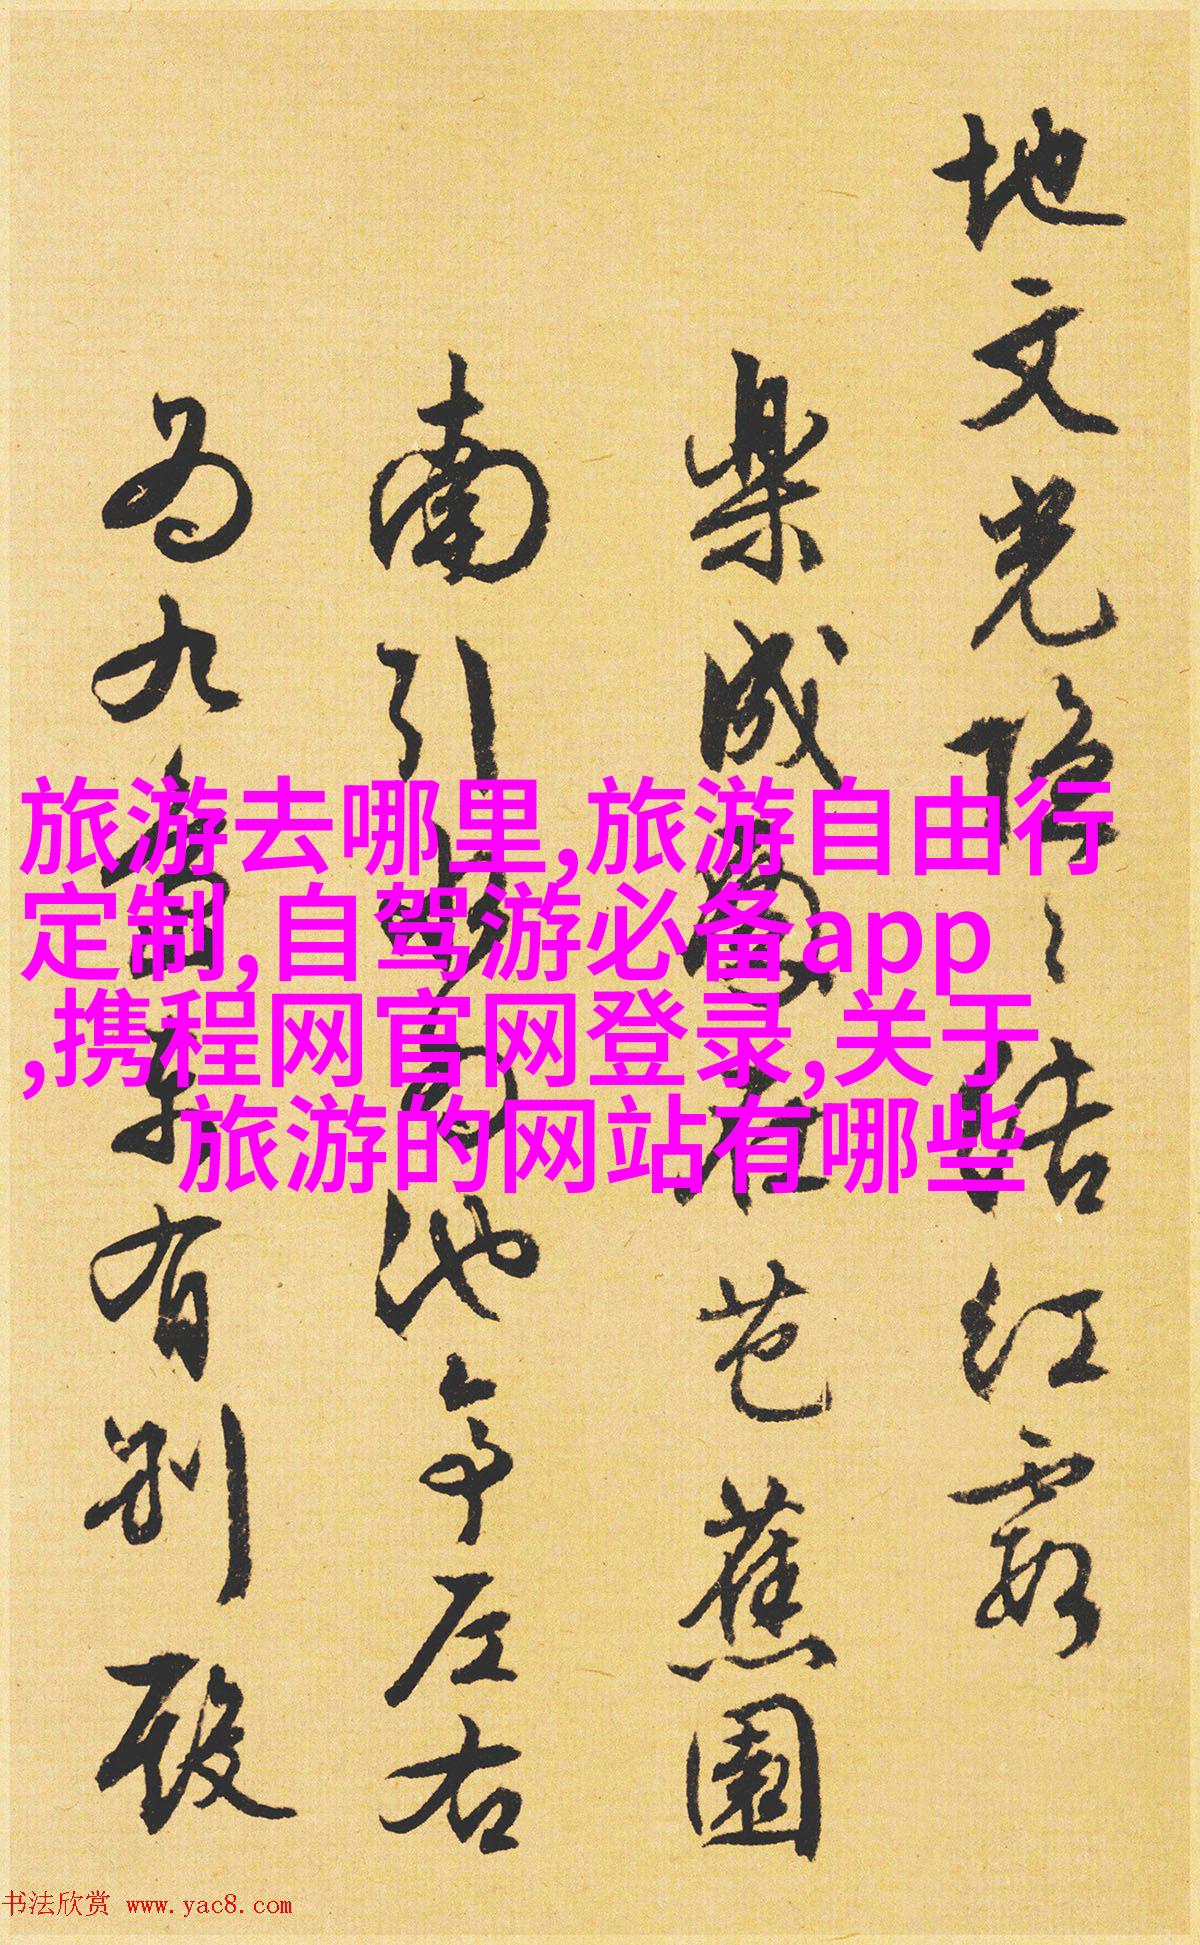 地文光隐〻结红霞
樂成在芭蕉園
南引池亭左右
为九有别殿
旅游去哪里,旅游自由行
定制,自驾游必备app
,携程网官网登录,关于
旅游的网站有哪些
书法欣赏 www.yac8.com